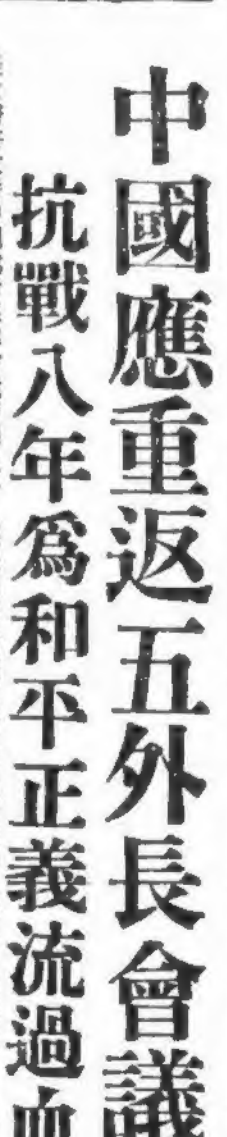 中國應重返五外長會議
抗戰八年爲和平正義流過血